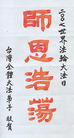 二〇〇七世界法輪大法日
師恩浩蕩
台灣全體大法弟子 敬賀